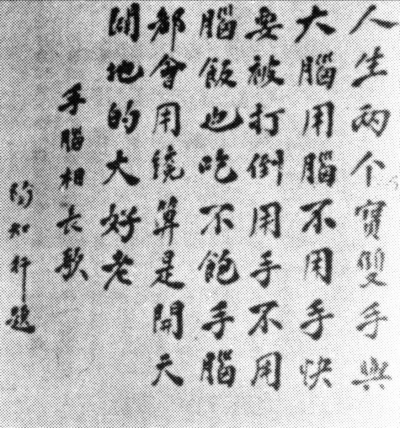 人生两个寶雙手與
大腦用腦不用手快
要被打倒用手不用
腦飯也吃不飽手腦
都會用纔算是開天
闢地的大好老
手腦相長歌
陶知行題